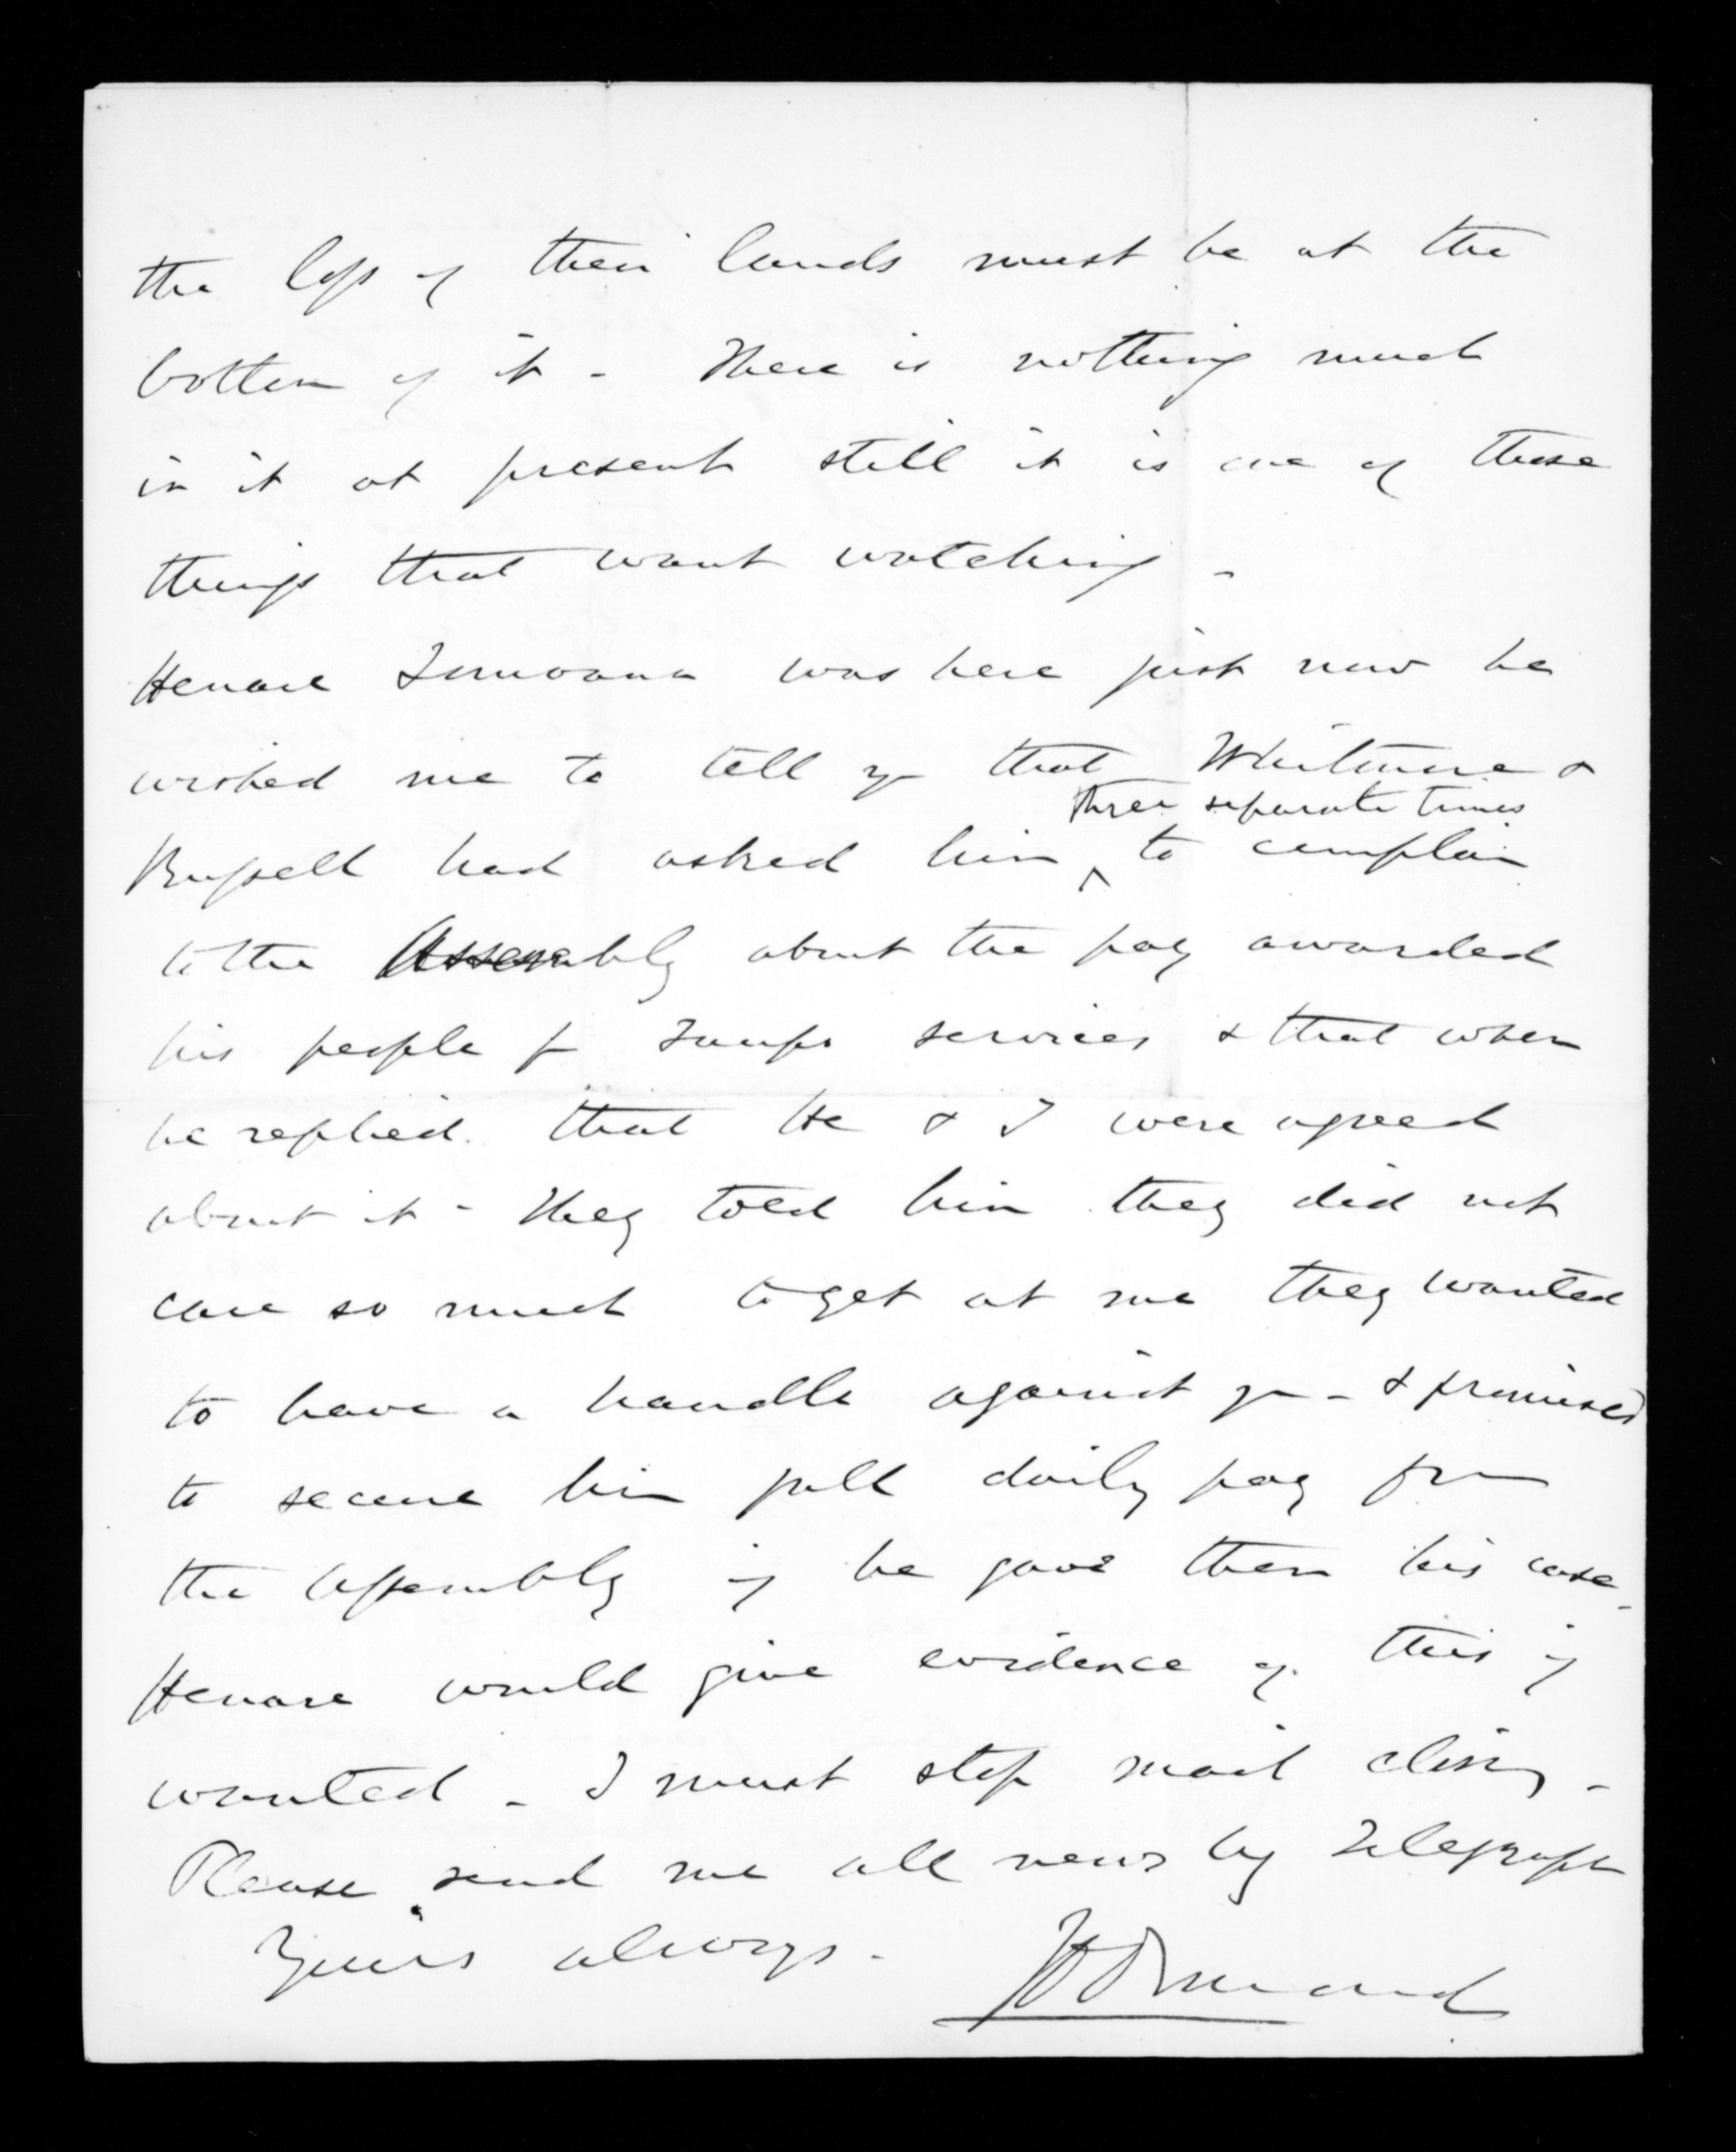 the loss of their lands must be at the
bottom of it - There is nothing much
in it at present still it is one of those
things that want watching -
Henare Tomoana was here just now he
wished me to tell you that Whitmore &
three separate times
Russell had asked him ^ to complain
to the Assembly about the pay awarded
his people for Taupo services & that when
he replied that He & I were agreed
about it - They told him they did not
care so much to get at me they wanted
to have a handle against you - & promised
to secure him full daily pay from
the Assembly if he gave them his case -
Henare would give evidence of this if
wanted - I must stop mail closing -
Please send me all news by Telegraph
Yours always -
JD Ormond